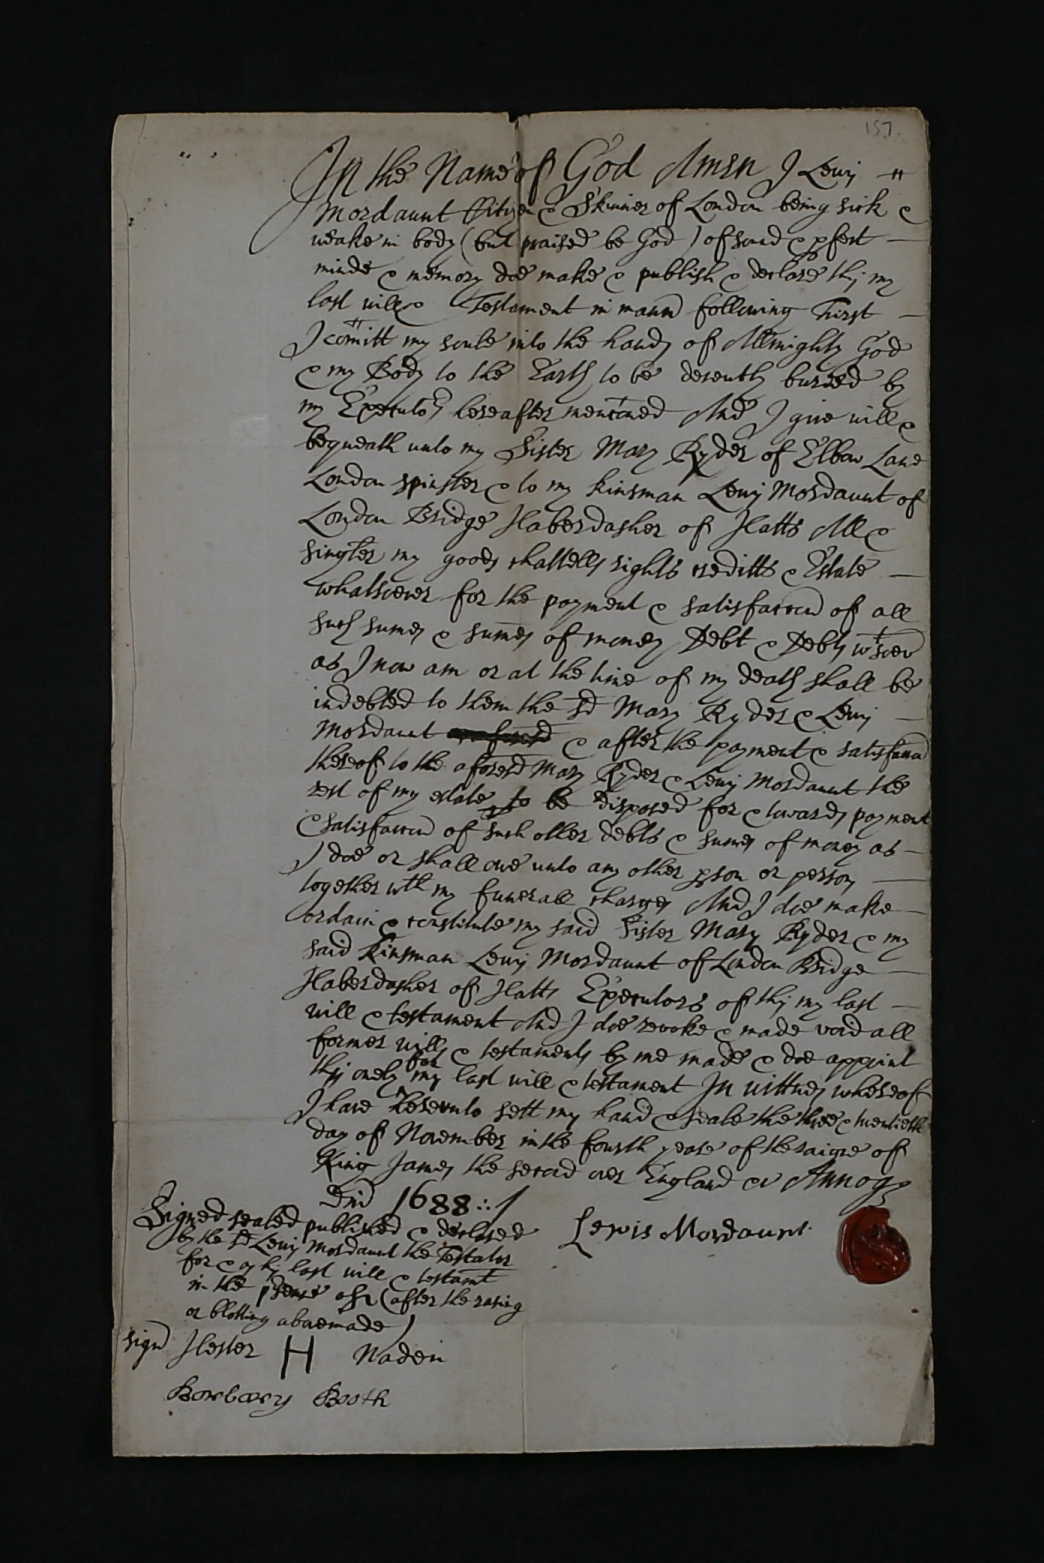 157.
In the Name of God Amen I Lewis
Mordaunt Citizen & Skinner of London being sick &
weake in body (but praised be God) of sound & pfect
minde & memory doe make & publish & declare this my
last will & Testament in mannr following First
I comitt my soule into the hands of Allmighty God
& my Body to the Earth to be decently buried by
my Executors hereafter mentioned And I give will &
bequeath unto my Sister Mary Ryder of Elbow Lane
London spinster & to my kinsman Lewis Mordaunt of
London Bridge Haberdasher of Hatts All &
singler my goods chattells rights creditts & Estate
whatsoever for the payment & satisfaccon of all
such sumes & sumes of money Debt & Debts wtsoevr
as I now am or at the time of my death shall be
indebted to them the sd Mary Ryder & Lewis
Mordaunt & after the payment & satisfaccon
thereof to the aforesd Mary Ryder & Lewis Mordaunt the
rest of my estate to be disposed for & towards payment
& satisfaccon of such other debts & sumes of money as
I doe or shall owe unto any other pson or persons
together wth my funerall charges And I doe make
ordain & constitute my said Sister Mary Ryder & my
said Kinsman Lewis Mordaunt of London Bridge
Haberdasher of Hatts Executors of this my last
will & testament And I doe revoke & made void all
former wills & testaments by me made & doe appoint
this onely for my last will & testament In wittnes whereof
I have hereunto sett my hand & seale the three & twentieth
day of November in the fourth yeare of the raigne of
King James the second over England &c Annoq
Dni 1688
Lewis Mordaunt
Signed sealed published & declared
by the sd Lewis Mordaunt the Testator
for & as his last will & testamt
in the psence of us (after the rasing
or blotting above made)
sign Hester H Naden
Barbary Booth